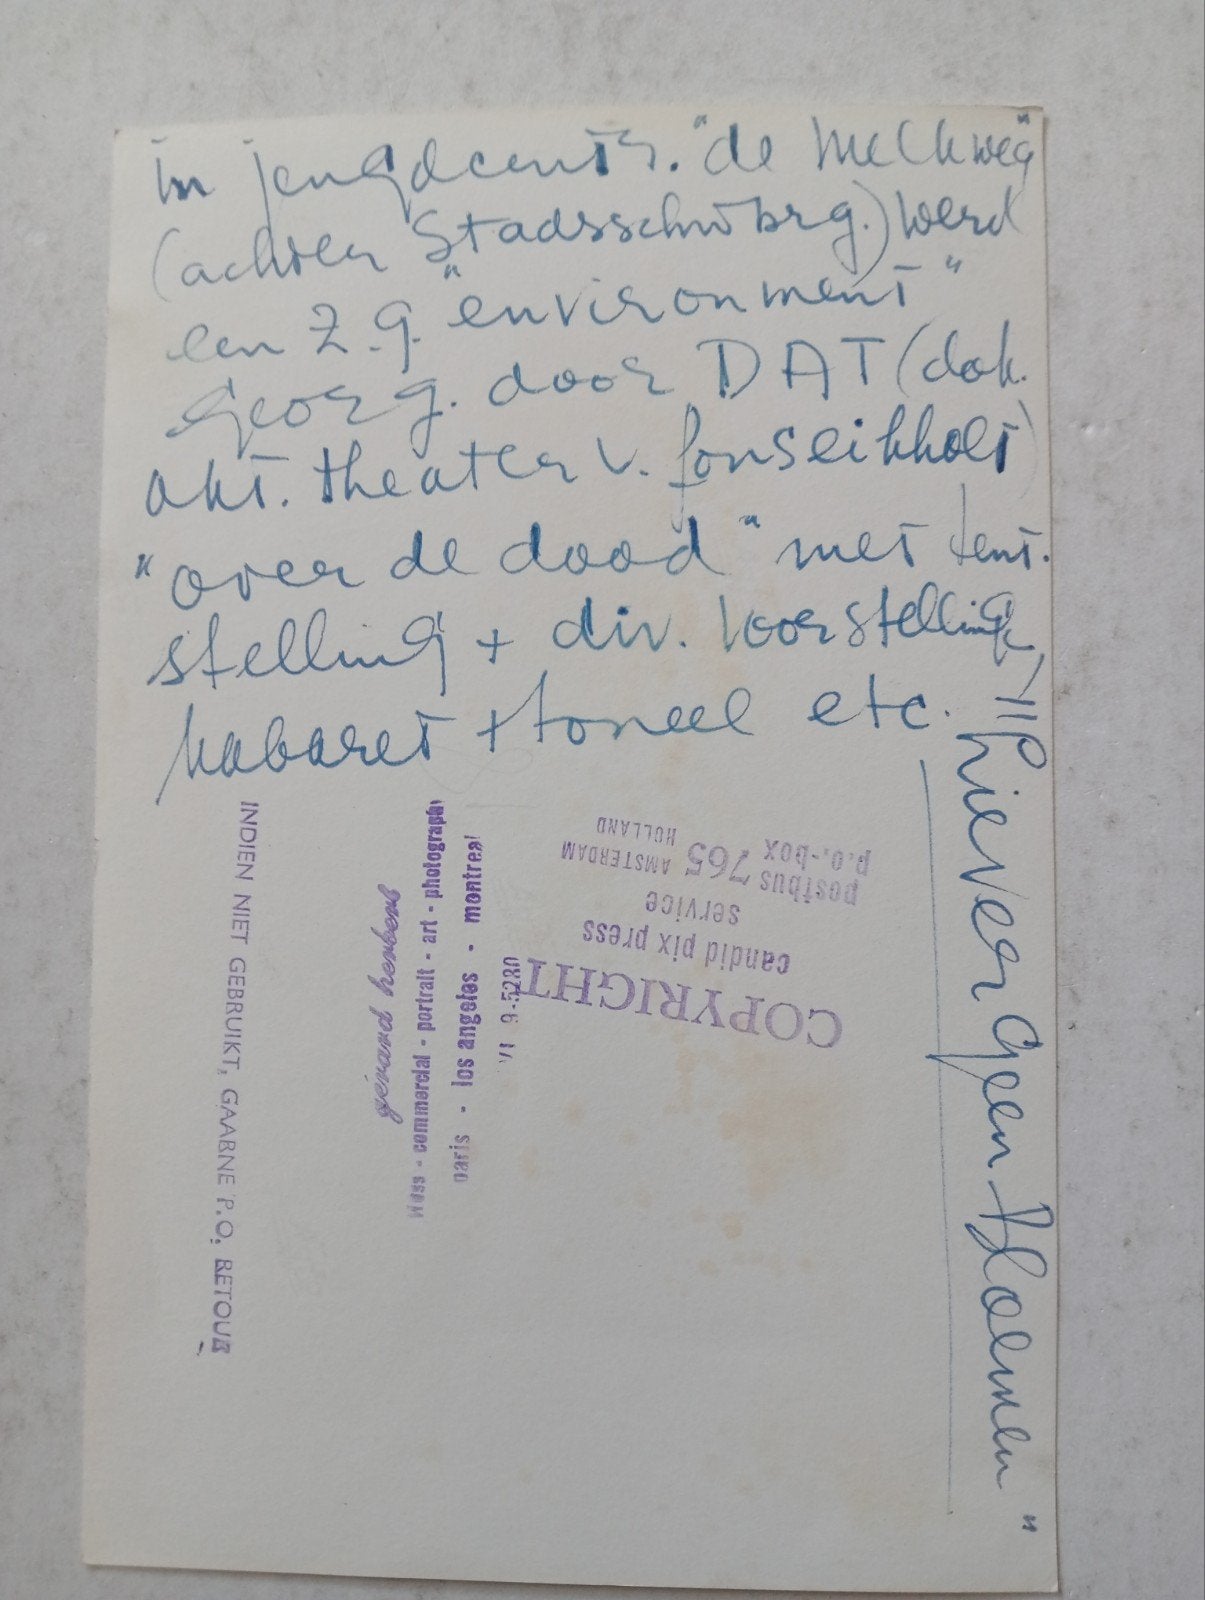 in jeugdcentr. "de Melkweg"
(achter Stadsschwbrg.) werd
een z.g. "environment"
georg. door DAT (dok.
akt. theater v. fons eikholt)
"over de dood" met tent.
stelling + div. voorstelling
kabaret + toneel etc.
"liever geen bloemen"
INDIEN NIET GEBRUIKT, GAARNE P.O, RETOUR
gérard herbert
commercial - portrait - art - photography
paris - los angeles - montreal
9-5280
COPYRIGHT
candid pix press
service
postbus 765 AMSTERDAM
p.o.-box HOLLAND